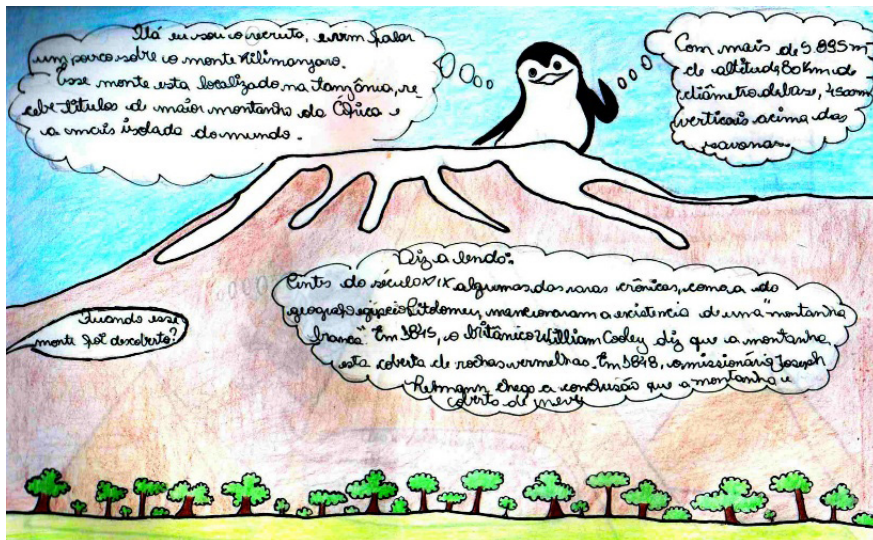 Olá eu sou o recruta, e vim falar
um pouco sobre o monte Kilimanjaro.
Esse monte esta localizado na Tanzânia, re-
cebe títulos de maior montanha da África e
a mais isolada do mundo.
Com mais de 5.895m
de altitude, 80 km de
diâmetro de base, 4500m
verticais acima das
savanas.
Quando esse
monte foi descoberto?
Diz a lenda:
Antes do século XIX algumas das raras crônicas, como a do
geografo egípcio Pitolomeu, mencionaram a existencia de uma "montanha
branca" Em 1845, o britânico William Cooley diz que a montanha
esta coberta de rochas vermelhas. Em 1848, o missionário Joseph
Rebmann chega a conclusão que a montanha é
coberta de neve